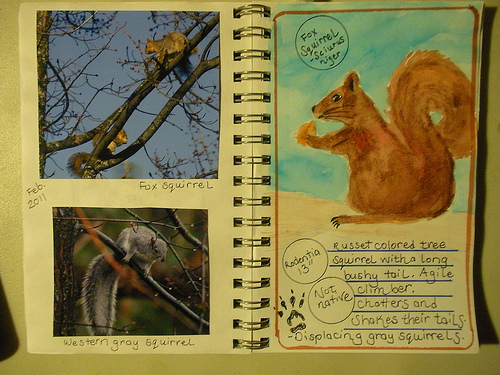 Fox squirrel
Feb.
2011
Western gray squirrel
Fox
Squirrel
-Sciurus
niger
Rodentia
13"
Not
native
Russet colored tree
squirrel with a long
bushy tail. Agile
climber.
Chatters and
shakes their tails.
-Displacing gray squirrels.